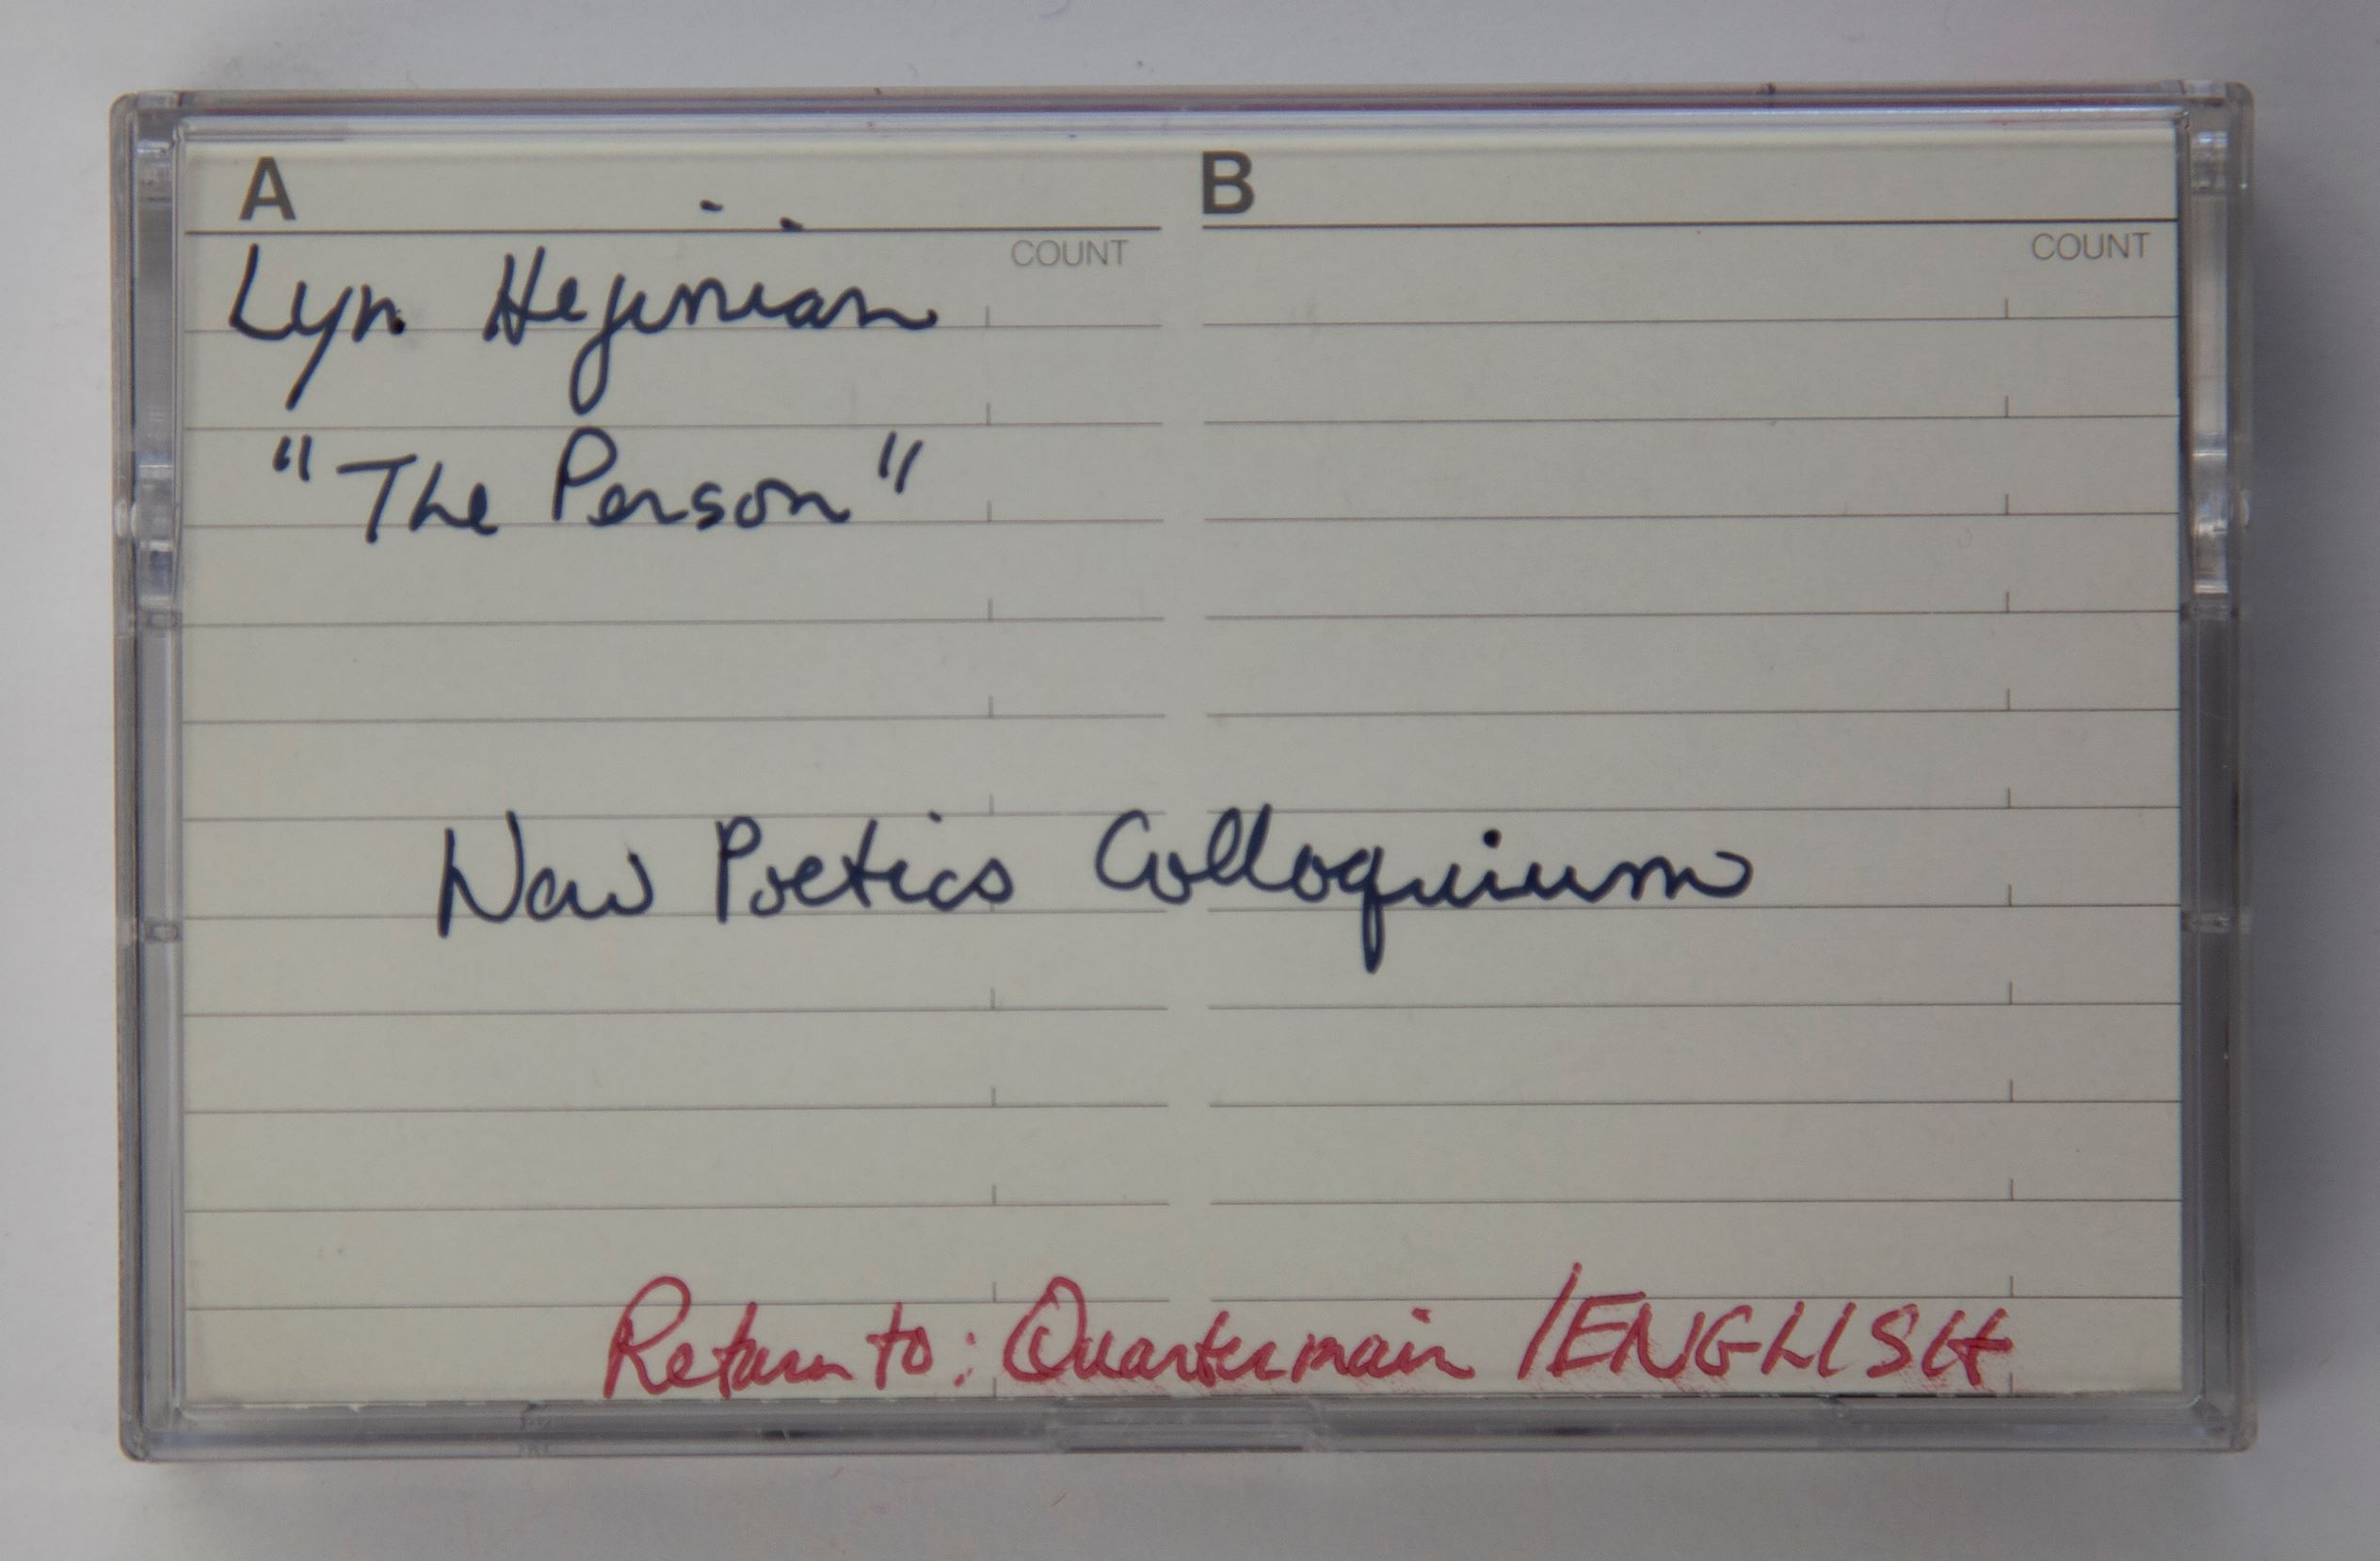 A B
COUNT COUNT
Lyn Hejinian
"The Person"
New Poetics Colloquium
Return to: Quartermain /ENGLISH